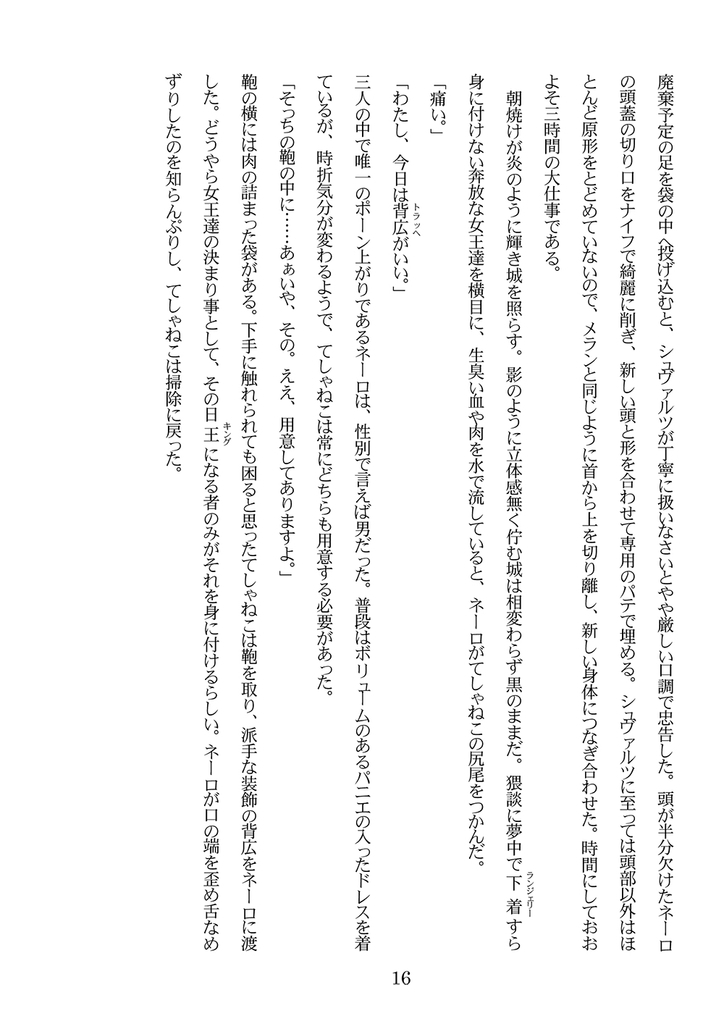 廃棄予定の足を袋の中へ投げ込むと、シュヴァルツが丁寧に扱いなさいとやや厳しい口調で忠告した。頭が半分欠けたネーロ
の頭蓋の切り口をナイフで綺麗に削ぎ、新しい頭と形を合わせて専用のパテで埋める。シュヴァルツに至っては頭部以外はほ
とんど原形をとどめていないので、メランと同じように首から上を切り離し、新しい身体につなぎ合わせた。時間にしておお
よそ三時間の大仕事である。
朝焼けが炎のように輝き城を照らす。影のように立体感無く佇む城は相変わらず黒のままだ。猥談に夢中で下着すら
ランジェリー
身に付けない奔放な女王達を横目に、生臭い血や肉を水で流していると、ネーロがてしゃねこの尻尾をつかんだ。
「痛い。」
「わたし、今日は背広がいい。」
トラッヘ
三人の中で唯一のポーン上がりであるネーロは、性別で言えば男だった。普段はボリュームのあるパニエの入ったドレスを着
ているが、時折気分が変わるようで、てしゃねこは常にどちらも用意する必要があった。
「そっちの鞄の中に……あぁいや、その。ええ、用意してありますよ。」
鞄の横には肉の詰まった袋がある。下手に触れられても困ると思ったてしゃねこは鞄を取り、派手な装飾の背広をネーロに渡
した。どうやら女王達の決まり事として、その日王になる者のみがそれを身に付けるらしい。ネーロが口の端を歪め舌なめ
キング
ずりしたのを知らんぷりし、てしゃねこは掃除に戻った。
16